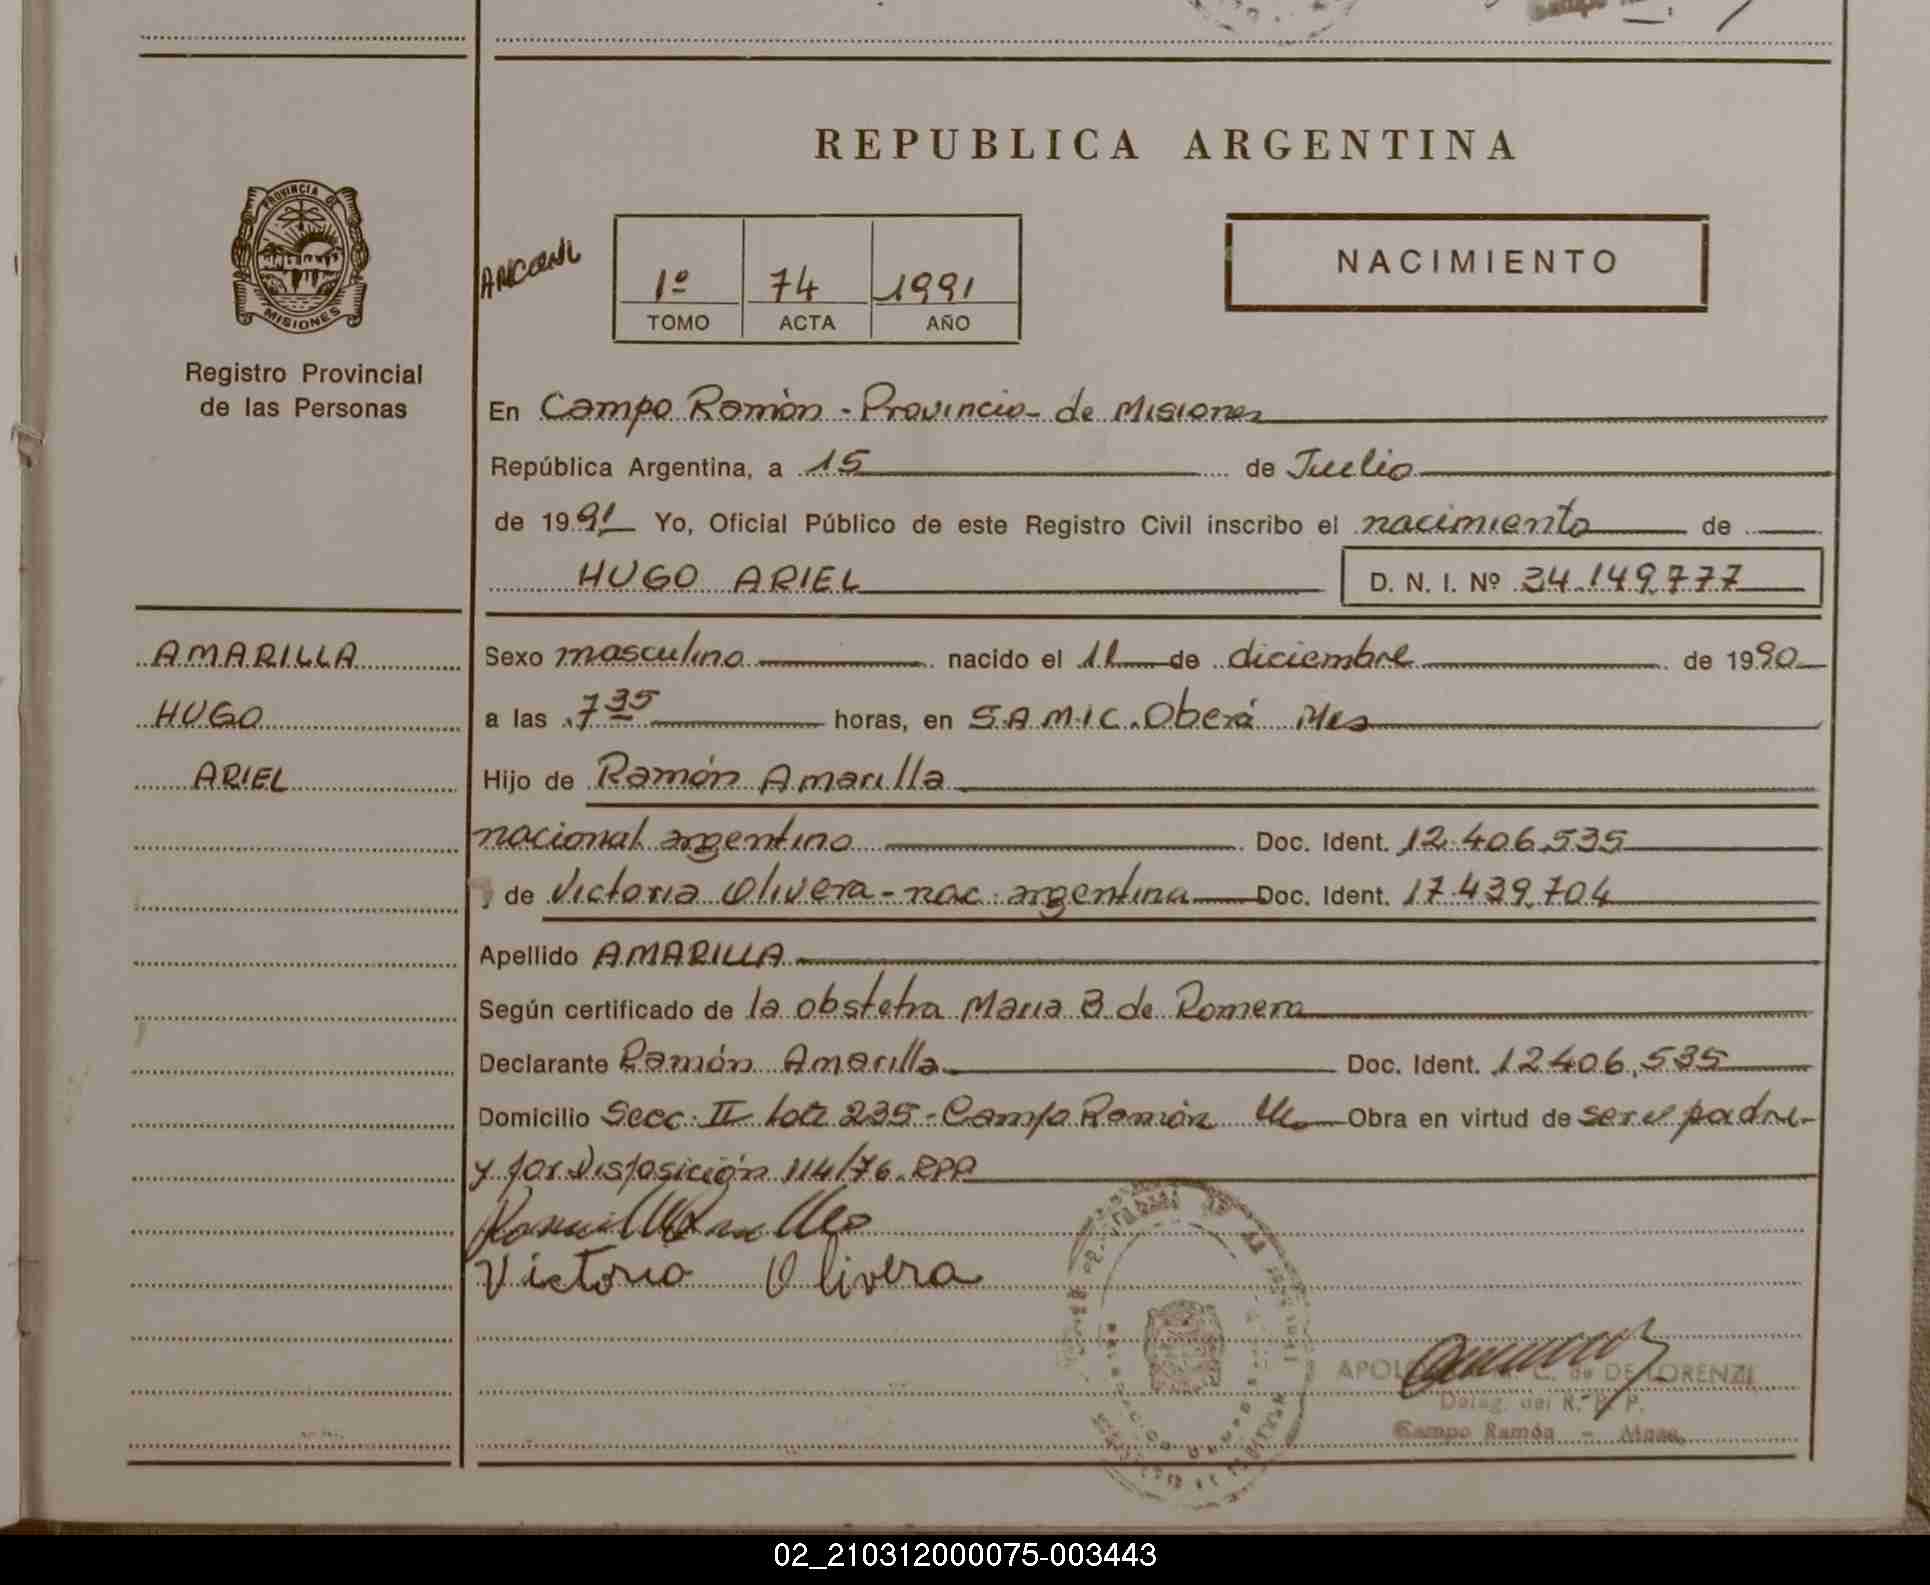 REPUBLICA ARGENTINA
PROVINCIA DE
MISIONES
Registro Provincial
de las Personas
NACIMIENTO
1º 74 1991
TOMO ACTA AÑO
En Campo Ramón - Provincia de Misiones
República Argentina, a 15 de Julio
de 1991 Yo, Oficial Público de este Registro Civil inscribo el nacimiento de
HUGO ARIEL D. N. I. Nº 34.149.777
AMARILLA
HUGO
ARIEL
Sexo masculino nacido el 11 de diciembre de 1990
a las 7 35 horas, en S.A.M.I.C. Oberá Mes
Hijo de Ramón Amarilla
nacional argentino Doc. Ident. 12.406.535
y de Victoria Olivera - nac. argentina Doc. Ident. 17.439.704
Apellido AMARILLA
Según certificado de la obstetra Maria B de Romero
Declarante Ramón Amarilla Doc. Ident. 12406.535
Domicilio Secc. II lote 235 - Campo Ramón Obra en virtud de ser el padre
y por Disposición 114/76. RPP
Victoria Olivera
C. de DE LORENZI
Deleg. del R. P. P.
Campo Ramón - Mnes.
02_210312000075-003443